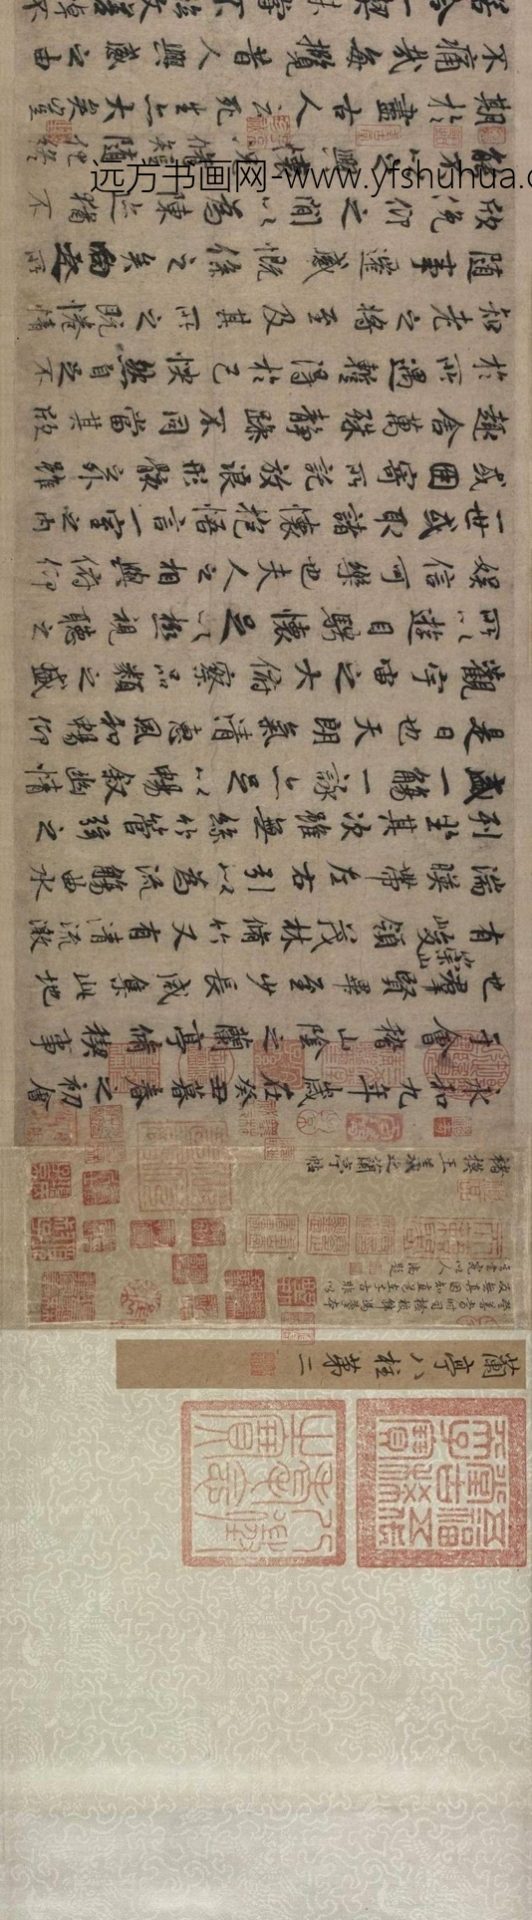 五福五代堂古稀天子寶
八徵耄念之寶
蘭亭八柱第二
褚模王羲之蘭亭帖
永和九年歲在癸丑暮春之初會
于會稽山陰之蘭亭脩稧事
也群賢畢至少長咸集此地
有崇山峻領茂林脩竹又有清流激
湍暎帶左右引以為流觴曲水
列坐其次雖無絲竹管弦之
盛一觴一詠亦足以暢敘幽情
是日也天朗氣清惠風和暢仰
觀宇宙之大俯察品類之盛
所以遊目騁懷足以極視聽之
娛信可樂也夫人之相與俯仰
一世或取諸懷抱悟言一室之內
或因寄所託放浪形骸之外雖
趣舍萬殊靜躁不同當其欣
於所遇暫得於己怏然自足不
知老之將至及其所之既惓情
隨事遷感慨係之矣向之所
欣俛仰之間以為陳迹猶不
能不以之興懷況脩短隨化終
期於盡古人云死生亦大矣豈
不痛哉每攬昔人興感之由
若合一契未嘗不臨文嗟悼不
远方书画网-www.yfshuhua.co